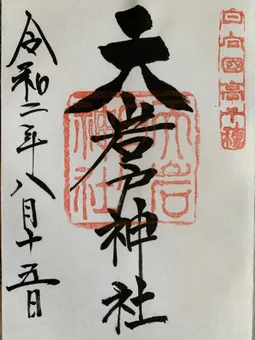 日向國高千穂
天岩戸神社
天岩戸神社
令和二年八月十五日